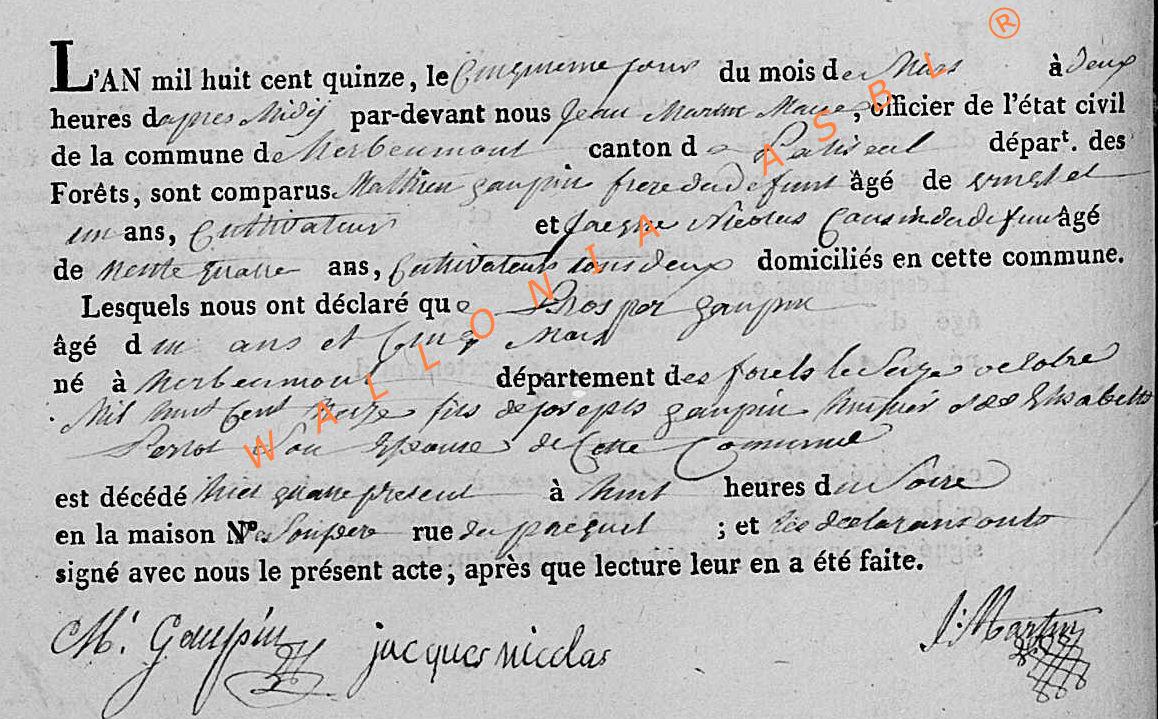 L'AN mil huit cent quinze, le Cinquieme jour du mois de Mars à deux
heures d'apres Midij par-devant nous Jean Martin Maire, officier de l'état civil
de la commune de Herbeumont canton de Paliseul départ. des
Forêts, sont comparus Mathieu gaupin frere du defunt âgé de vingt et
un ans, Cultivateur et Jacque Nicolas Cousin du defunt âgé
de trente quatre ans, Cultivateurs tous deux domiciliés en cette commune.
Lesquels nous ont déclaré que Prosper gaupin
âgé d'un ans et Cinq Mois
né à Herbeumont département des forets le Seize octobre
Mil huit Cent treize fils de joseph gaupin huissier et de Elisabette
Perlot Son Epouse de Cette Commune
est décédé hier quatre present à huit heures du Soire
en la maison N° rue du pacquet ; et les declarans onts
signé avec nous le présent acte, après que lecture leur en a été faite.
M. Gaupin jacques nicolas J: Martin
WALLONIA ASBL ®